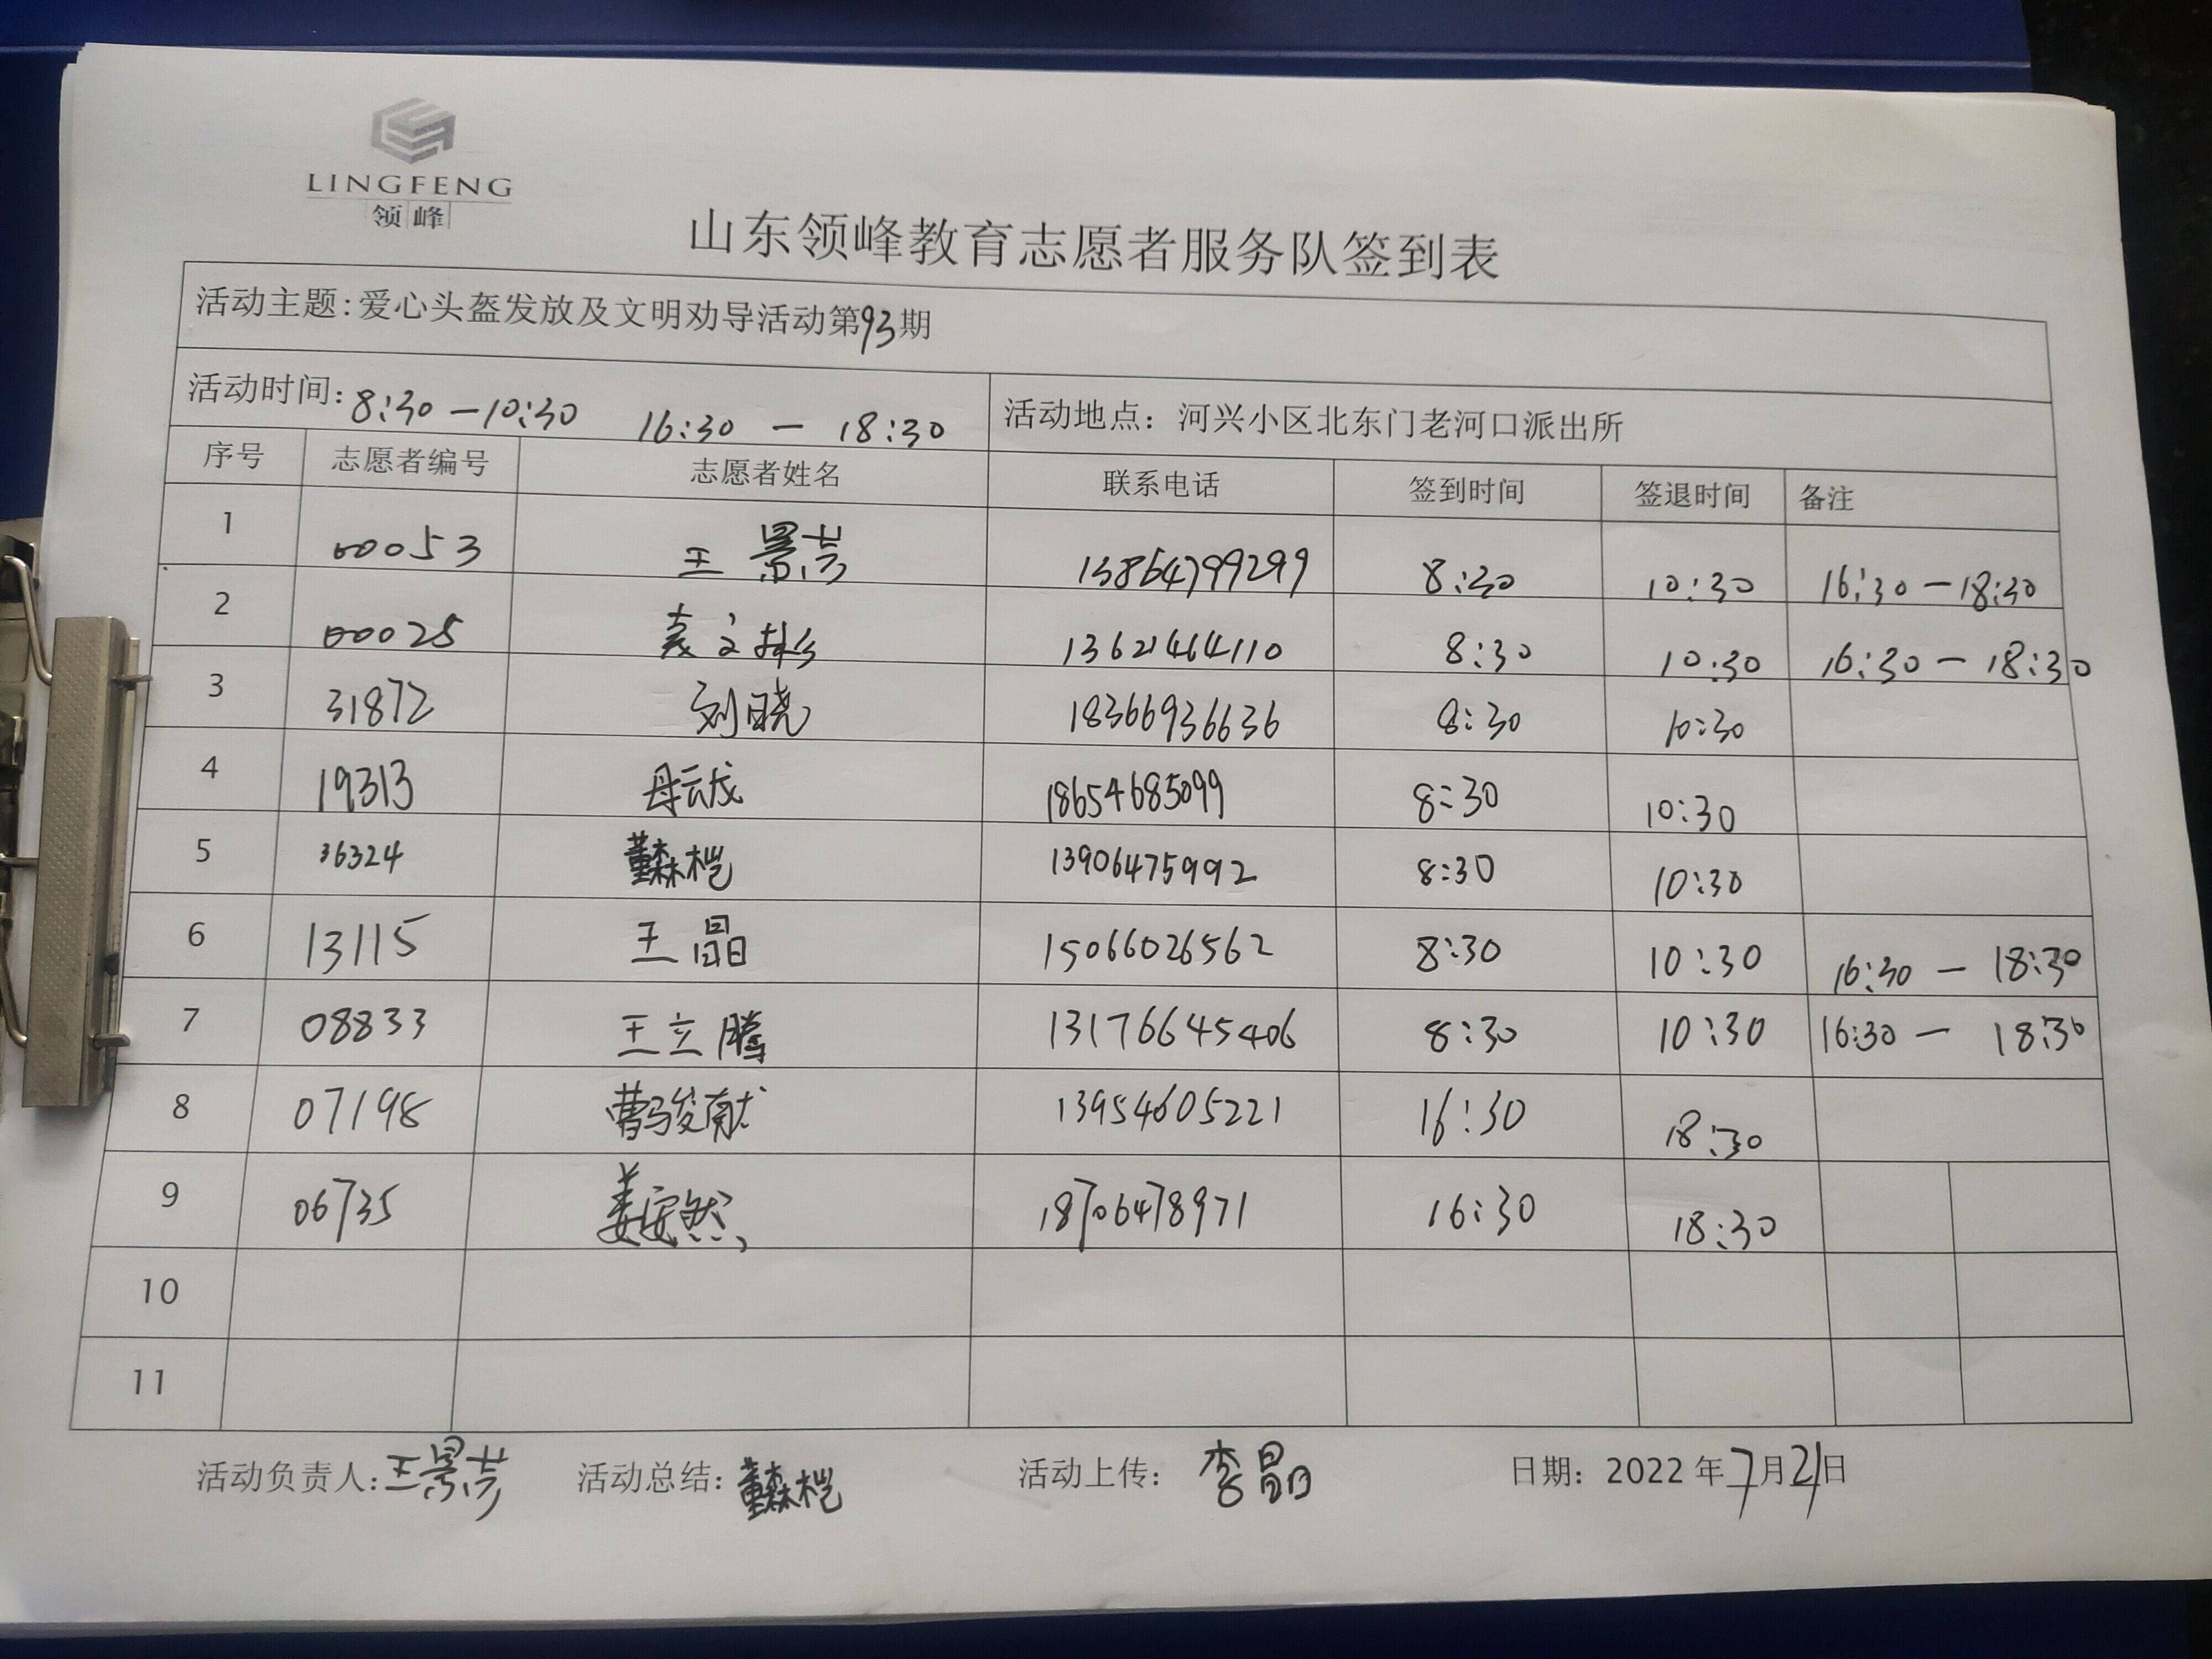 LINGFENG
领峰
山东领峰教育志愿者服务队签到表
活动主题:爱心头盔发放及文明劝导活动第93期
活动时间: 8:30—10:30 16:30 — 18:30 活动地点：河兴小区北东门老河口派出所
序号 志愿者编号 志愿者姓名 联系电话 签到时间 签退时间 备注
1 00053 王景芸 13864799299 8:30 10:30 16:30—18:30
2 00025 袁文 13621464110 8:30 10:30 16:30—18:30
3 31872 刘晓 18366936636 8:30 10:30
4 19313 母云龙 18654685099 8:30 10:30
5 36324 董森桤 13906475992 8:30 10:30
6 13115 王晶 15066026562 8:30 10:30 16:30 — 18:30
7 08833 王立腾 13176645406 8:30 10:30 16:30 — 18:30
8 07198 曹骏献 13954605221 16:30 18:30
9 06735 姜安然 18706478971 16:30 18:30
10
11
活动负责人:王景芸 活动总结:董森桤 活动上传：李晶 日期：2022年7月21日